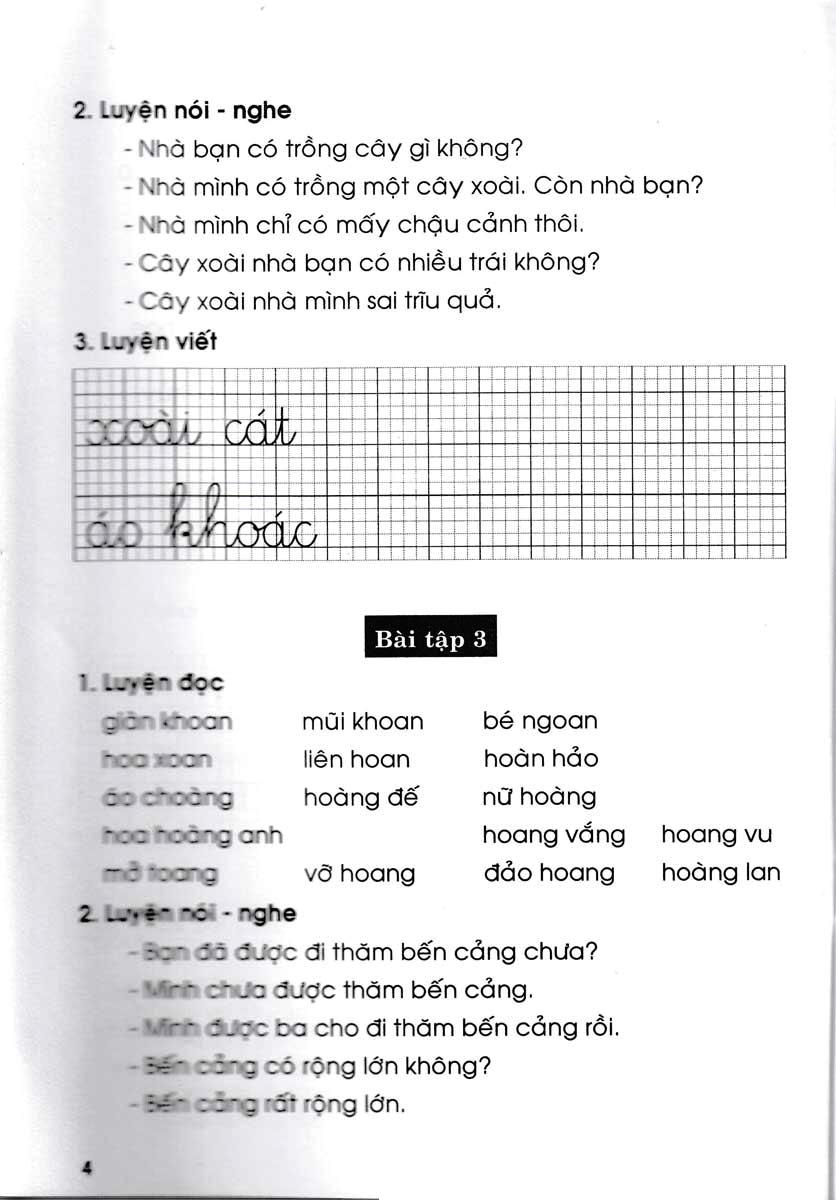 2. Luyện nói - nghe
- Nhà bạn có trồng cây gì không?
- Nhà mình có trồng một cây xoài. Còn nhà bạn?
- Nhà mình chỉ có mấy chậu cảnh thôi.
- Cây xoài nhà bạn có nhiều trái không?
- Cây xoài nhà mình sai trĩu quả.
3. Luyện viết
xoài cát
áo khoác
Bài tập 3
1. Luyện đọc
giàn khoan mũi khoan bé ngoan
hoa xoan liên hoan hoàn hảo
áo choàng hoàng đế nữ hoàng
hoa hoàng anh hoang vắng hoang vu
mở toang vỡ hoang đảo hoang hoàng lan
2. Luyện nói - nghe
- Bạn đã được đi thăm bến cảng chưa?
- Mình chưa được thăm bến cảng.
- Mình được ba cho đi thăm bến cảng rồi.
- Bến cảng có rộng lớn không?
- Bến cảng rất rộng lớn.
4